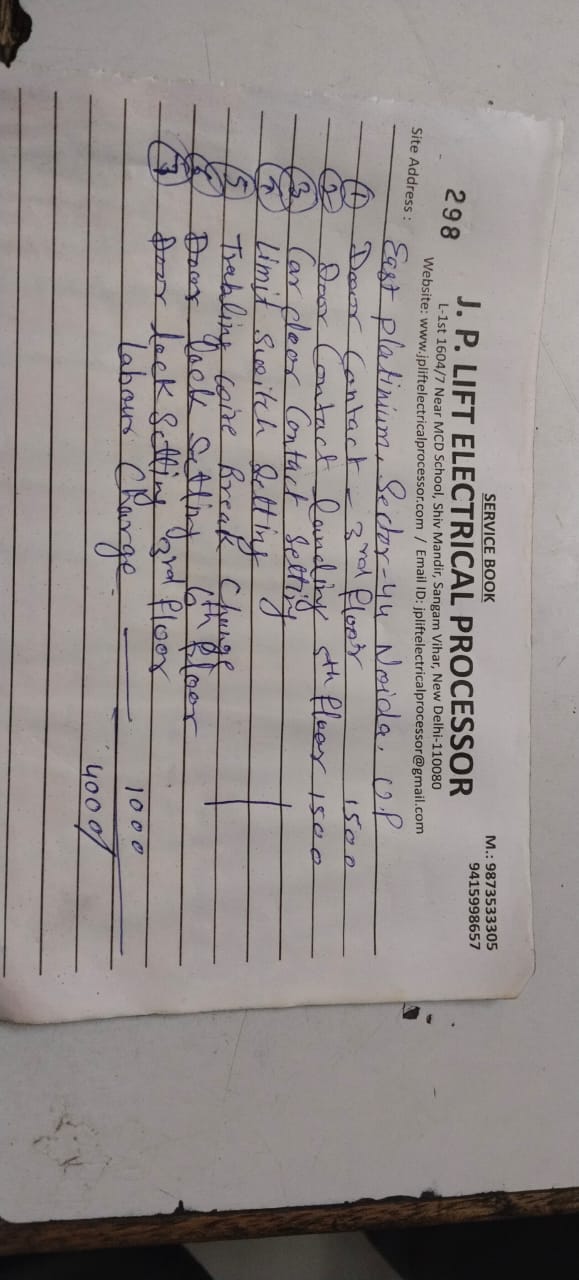 SERVICE BOOK
M.: 9873533305
9415998657
J. P. LIFT ELECTRICAL PROCESSOR
298
L-1st 1604/7 Near MCD School, Shiv Mandir, Sangam Vihar, New Delhi-110080
Website: www.jpliftelectricalprocessor.com / Email ID: jpliftelectricalprocessor@gmail.com
Site Address : East Platinium, Sector-44 Noida, U.P
① Door Contact - 3rd floor 1500
② Door Contact Landing 5th floor 1500
③ Car door Contact Setting
④ Limit Switch Setting
⑤ Trabling wire Break Change
⑥ Door Lock Setting 6th floor
⑦ Door Lock Setting 3rd floor
Labour Charge — 1000
4000/